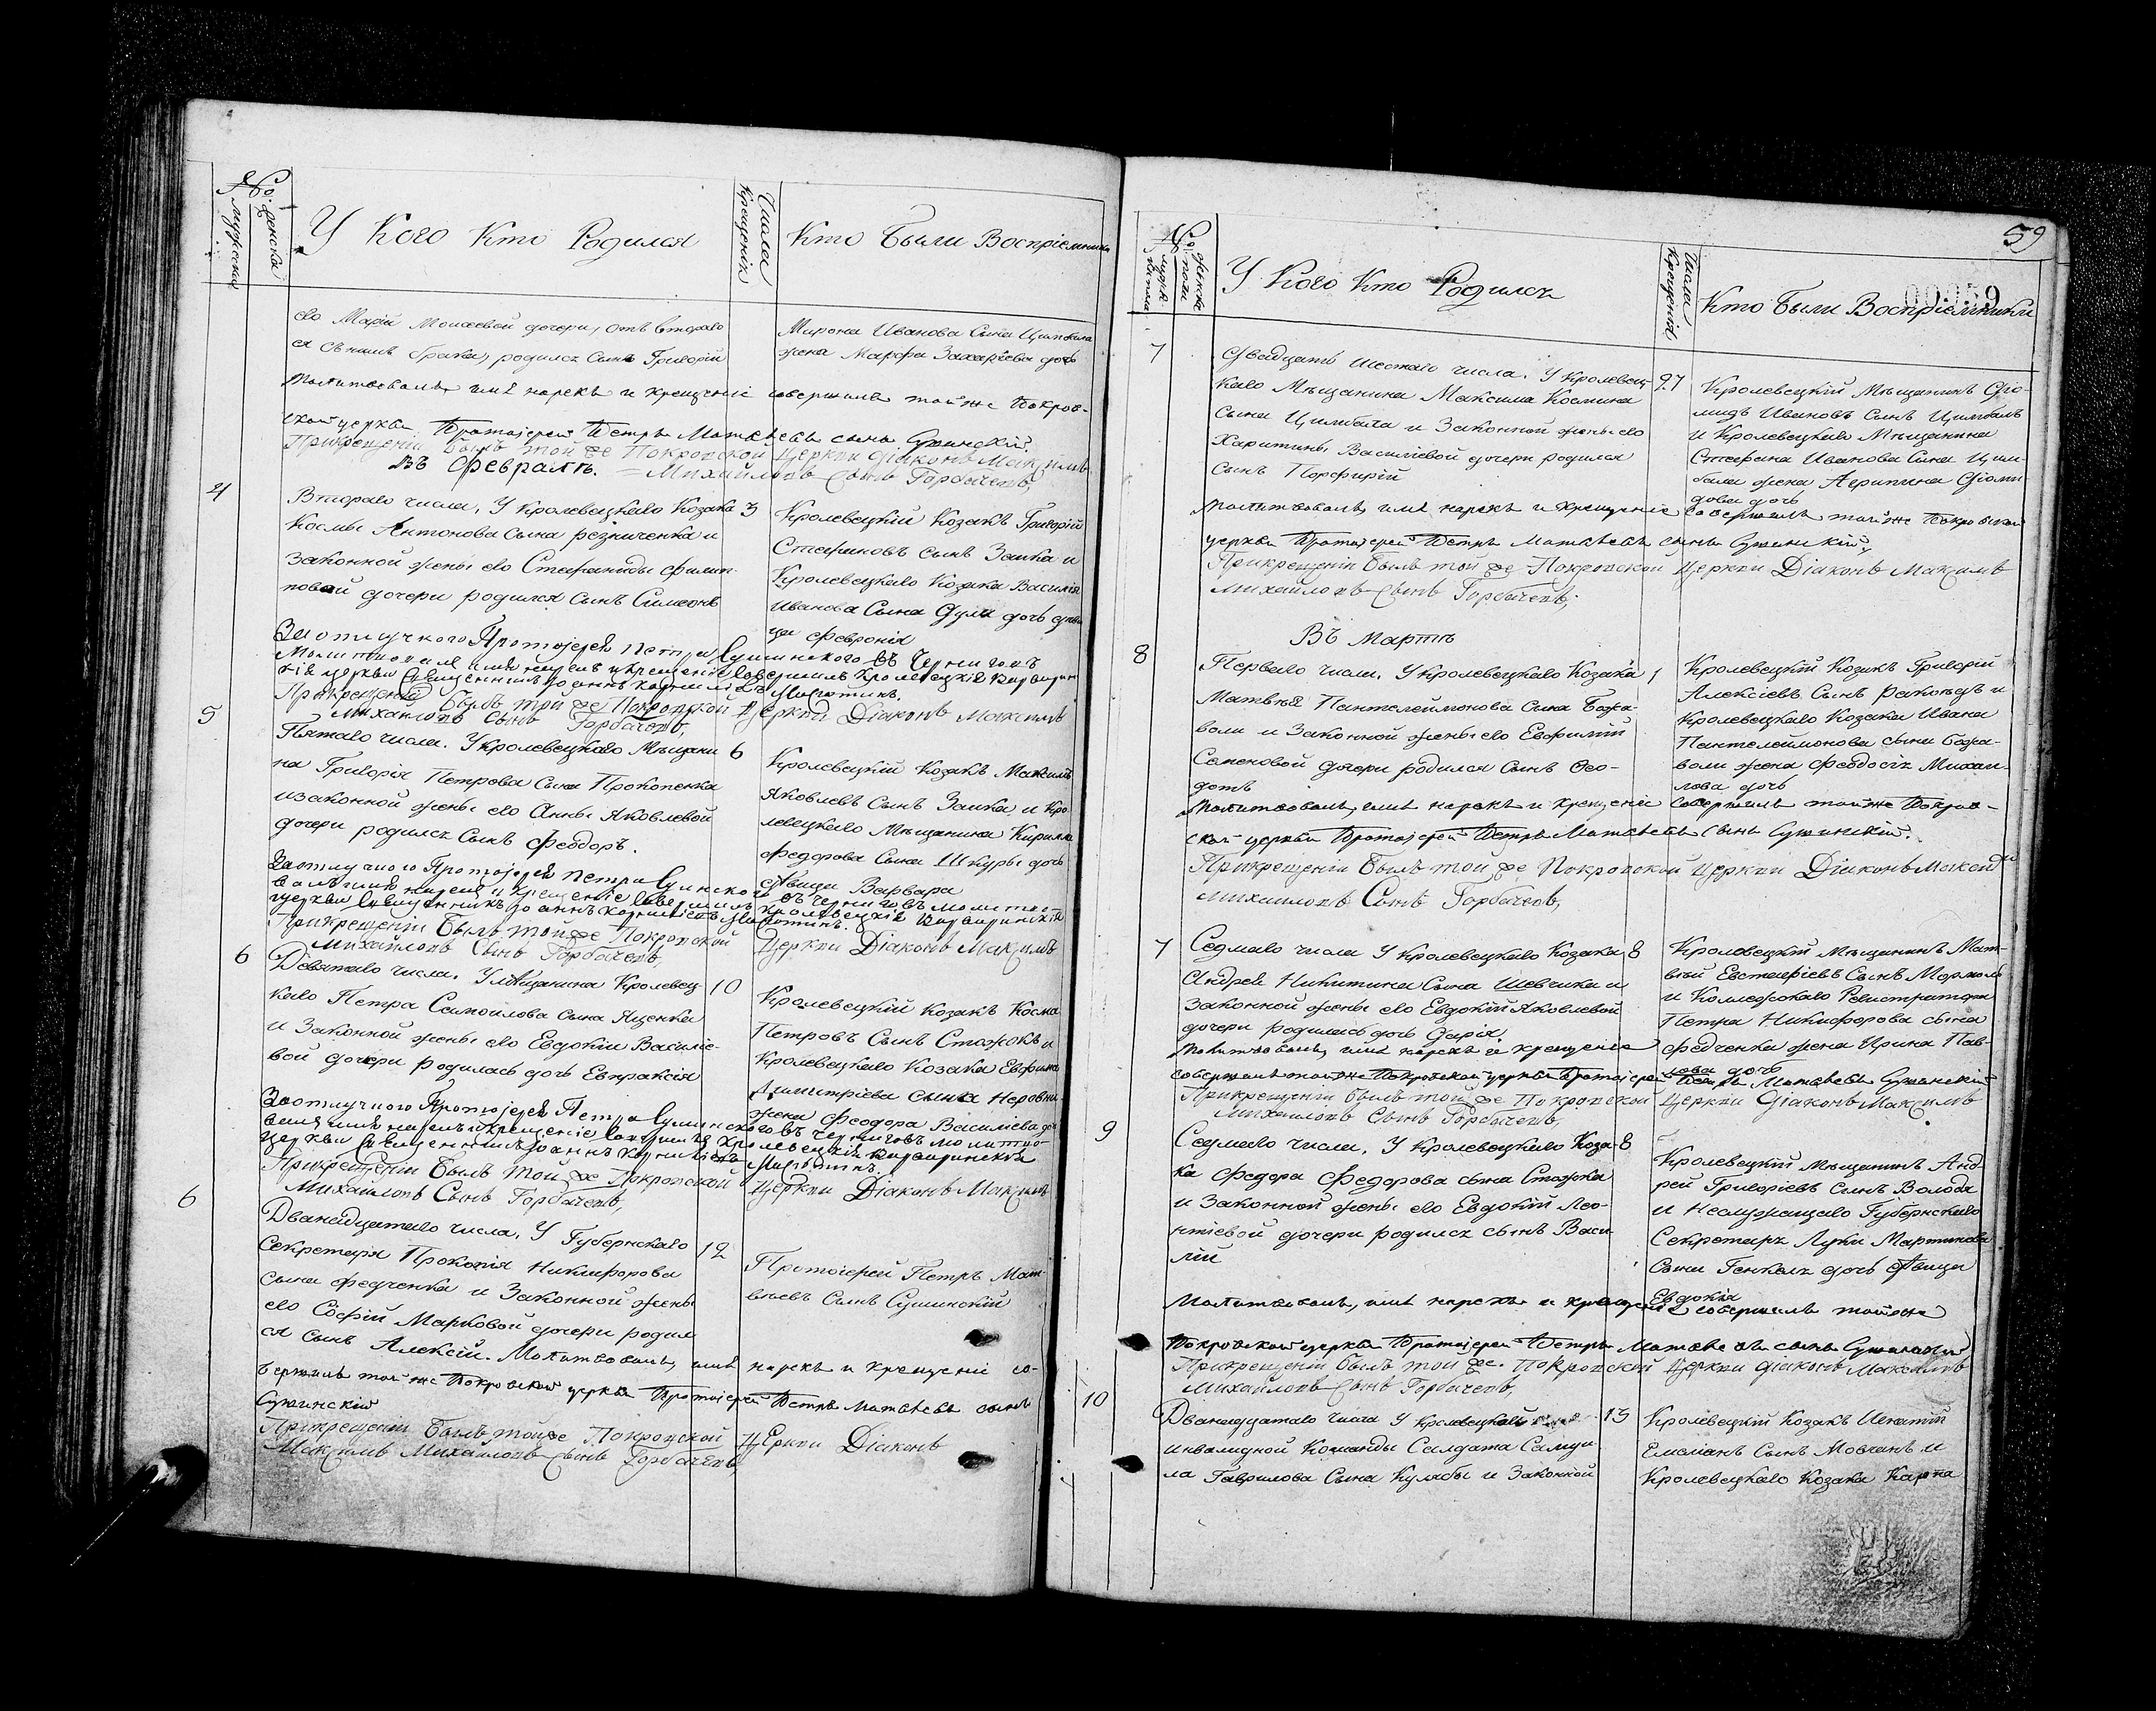 №
мужеска
женска
У Кого Кто Родился
Числа
Крещенія
Кто Были Воспріемники
его Маріи Моисеевой дочери, отъ втораго
Мирона Иванова сына Цимбала
жена Марфа Захаріева дочь
родился сынъ Григорій
Молитвовалъ, имя нарекъ и крещеніе совершилъ той же Покров-
ской церкви, Протоіерей Петръ Матвѣевъ сынъ Сушинскій.
Прикрещеніи былъ той же Покровской Церкви Діаконъ Максимъ
Въ Февралѣ. Михайловъ Сынъ Горбачевъ,
4
Втораго числа, У Кролевецкаго Козака
Космы Антонова Сына Резниченка и
Законной жены его Стефаниды Филип-
повой дочери родился Сынъ Симеонъ
3
Кролевецкій Козакъ Григорій
Стефановъ сынъ Заика и
Кролевецкаго Козака Василія
Иванова Сына Дули дочь дѣви
ца Февронія
За отлучкого Протоіерея Петра Сушинского въ Черниговъ
Молитвовалъ имя нареклъ и крещеніе совершилъ Кролевецкія Варварин
скія церкви Священникъ Іоаннъ Корниліевъ
Прикрещеніи Былъ той же Покровской Церкви Діаконъ Максимъ
Михайловъ Сынъ Горбачевъ,
5
Пятаго числа. У Кролевецкаго Мѣщани
на Григорія Петрова Сына Прокопенка
и законной жены его Анны Яковлевой
дочери родился Сынъ Феодоръ.
6
Кролевецкій Козакъ Максимъ
Яковлевъ Сынъ Заика, и Кро
левецкаго Мѣщанина Кирила
Федорова Сына Шкуры дочь
дѣвица Варвара
За отлучкого Протоіерея Петра Сушинского въ Черниговъ молитво-
валъ имя нареклъ и крещеніе совершилъ Кролевецкія Варваринскія
церкви Священникъ Іоаннъ Корниліевъ
Прикрещеніи Былъ той же Покровской Церкви Діаконъ Максимъ
Михайловъ Сынъ Горбачевъ,
6
Девятаго числа. У Мѣщанина Кролевец-
каго Петра Самойлова Сына Яценка
и Законной жены его Евдокіи Василіе-
вой дочери родилась дочь Евпраксія
10
Кролевецкій Козакъ Косма
Петровъ Сынъ Стожокъ и
Кролевецкаго Козака Евфима
Димитріева сына Неровни
жена Феодора Василіева дочь
За отлучкого Протоіерея Петра Сушинского въ Черниговъ молитво-
валъ имя нареклъ и крещеніе совершилъ Кролевецкія Варваринскія
церкви Священникъ Іоаннъ Корниліевъ
Прикрещеніи Былъ той же Покровской Церкви Діаконъ Максимъ
Михайловъ Сынъ Горбачевъ,
6
Дванадцатаго числа, У Губернскаго
Секретаря Прокопія Никифорова
сына Федченка и Законной жены
его Софіи Марковой дочери родил
ся сынъ Алексій. Молитвовалъ, имя нарекъ и крещеніе со-
12
Протоіерей Петръ Мат-
вѣевъ Сынъ Сушинскій
вершилъ той же Покровской церкви Протоіерей Петръ Матвѣевъ сынъ
Сушинскій
Прикрещеніи Былъ той же Покровской Церкви Діаконъ
Максимъ Михайловъ Сынъ Горбачевъ,
59
00059
№
мужеска
женска
У Кого Кто Родился
Числа
Крещенія
Кто Были Воспріемники
7
Двадцать шестаго числа. У Кролевец-
каго Мѣщанина Максима Космина
Сына Цимбала и Законной жены его
Харитины Василіевой дочери родился
сынъ Порфирій
27
Кролевецкій Мѣщанинъ Діо-
мидъ Ивановъ Сынъ Цимбалъ
и Кролевецкаго Мѣщанина
Стефана Иванова Сына Цим-
бала жена Агрипина Діоми-
дова дочь
Молитвовалъ, имя нарекъ и крещеніе совершилъ той же Покровской
церкви Протоіерей Петръ Матвѣевъ сынъ Сушинскій,
Прикрещеніи Былъ той же Покровской Церкви Діаконъ Максимъ
Михайловъ Сынъ Горбачевъ,
Въ Мартѣ
8
Перваго числа. У Кролевецкаго Козака
Матвѣя Пантелеймонова Сына Божа-
воли и Законной жены его Евфиміи
Семеновой дочери родился Сынъ Ѳео-
дотъ
1
Кролевецкій Козакъ Григорій
Алексіевъ Сынъ Ракоѣдъ и
Кролевецкаго Козака Ивана
Пантелеймонова сына Божа-
воли жена Феодосія Михаи-
лова дочь
Молитвовалъ, имя нарекъ и крещеніе совершилъ той же Покров-
ской церкви Протоіерей Петръ Матвѣевъ сынъ Сушинскій.
Прикрещеніи Былъ той же Покровской Церкви Діаконъ Максимъ
Михайловъ Сынъ Горбачевъ,
7
Седмаго числа У Кролевецкаго Козака
Андрея Никитина Сына Шевчика и
Законной жены его Евдокіи Яковлевой
дочери родилась дочь Дарія,
8
Кролевецкій Мѣщанинъ Мат-
вѣй Евстафіевъ Сынъ
и Коллежскаго Регистратора
Петра Никифорова сына
Федченка жена Ирина Пав-
лова дочь
Молитвовалъ, имя нарекъ и крещеніе
совершилъ той же Покровской церкви Протоіерей Петръ Матвѣевъ Сушинскій
Прикрещеніи Былъ той же Покровской Церкви Діаконъ Максимъ
Михайловъ Сынъ Горбачевъ,
9
Седмаго числа, У Кролевецкаго Коза-
ка Федора Федорова сына Стожка
и Законной жены его Евдокіи Лео-
нтіевой дочери родился сынъ Васи-
лій
8
Кролевецкій Мѣщанинъ Анд-
рей Григоріевъ Сынъ Волода
и Неслужащаго Губернскаго
Секретаря Луки Мартинова
Сына дочь дѣвица
Евдокія
Молитвовалъ, имя нарекъ и крещеніе совершилъ той же
Покровской церкви Протоіерей Петръ Матвѣевъ сынъ Сушинскій
Прикрещеніи Былъ той же Покровской Церкви Діаконъ Максимъ
Михайловъ Сынъ Горбачевъ,
10
Дванадцатаго числа У Кролевецкой
инвалидной Команды Салдата Самуи
ла Гаврилова Сына Кулябы и Законной
13
Кролевецкій Козакъ Игнатій
Сынъ Мовчанъ и
Кролевецкаго Козака Карпа